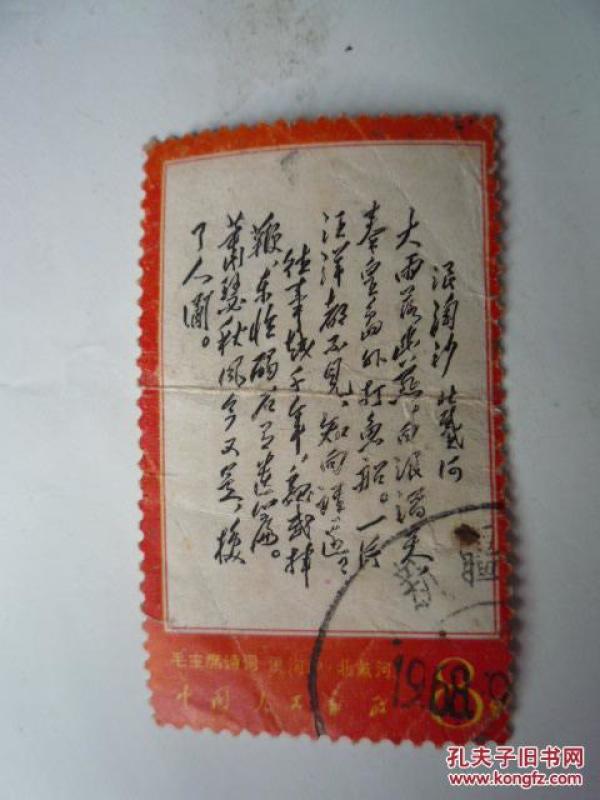 浪淘沙 北戴河
大雨落幽燕,白浪滔天,
秦皇岛外打鱼船。一片
汪洋都不见,知向谁边?
往事越千年,魏武挥
鞭,东临碣石有遗篇。
萧瑟秋风今又是,换
了人间。
毛主席诗词 浪淘沙·北戴河
中国人民邮政
8分
1968.
孔夫子旧书网
www.kongfz.com